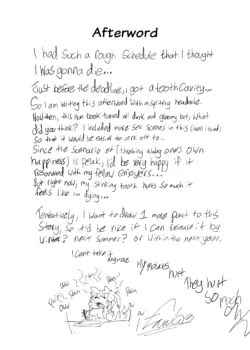 Afterword
I had such a rough schedule that I thought
I was gonna die...
Just before the deadline, I got a tooth cavity...
So I am writing this afterword with a splitting headache.
Now then, this fan book turned all dark and gloomy but, what
did you think? I included more sex scenes in this (than I had)
so that it would be easier to
Since the scenario of (throwing away one's own
happiness) is peak, I'd be very happy if it
resonated with my fellow enjoyers...
But right now, my stinking tooth hurts so much it
feels like im dying...
Tentatively, I want to draw 1 more part to this
story, so it'd be nice if I can release it by
winter? next summer? or within the next year.
I can't take it
anymore
My molars
hurt
They hurt
so much
pain
pain
ow
ow